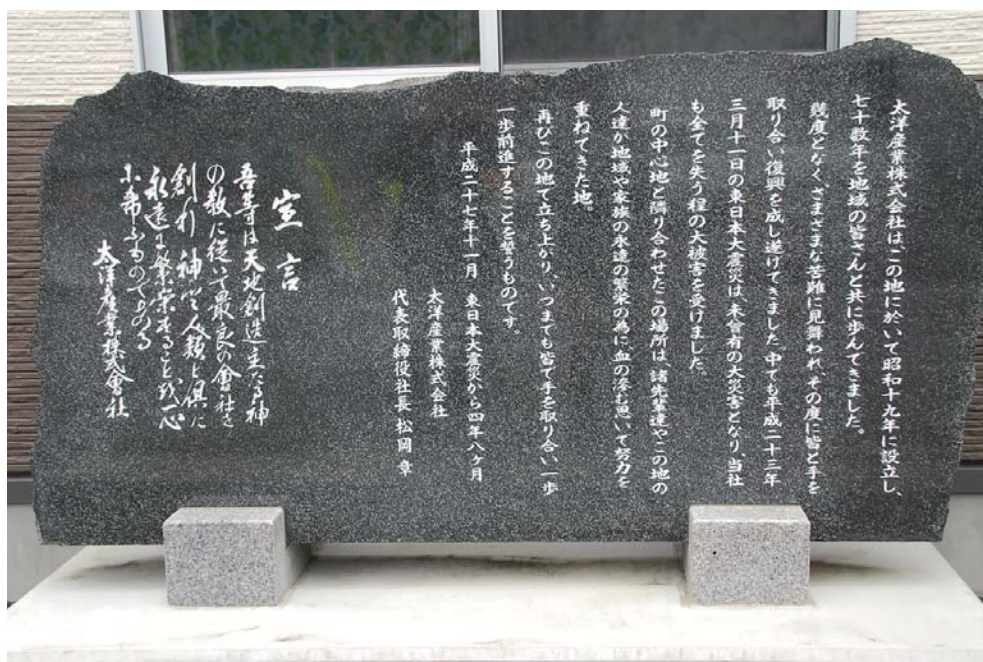 太洋産業株式会社は、この地に於いて昭和十九年に設立し、
七十数年を地域の皆さんと共に歩んできました。
幾度となく、さまざまな苦難に見舞われ、その度に皆と手を
取り合い復興を成し遂げてきました。中でも平成二十三年
三月十一日の東日本大震災は、未曾有の大災害となり、当社
も全てを失う程の大被害を受けました。
町の中心地と隣り合わせたこの場所は、諸先輩達やこの地の
人達が地域や家族の永遠の繁栄の為に、血の滲む思いで努力を
重ねてきた地。
再びこの地で立ち上がり、いつまでも皆で手を取り合い、一歩
一歩前進することを誓うものです。
平成二十七年十一月 東日本大震災から四年八ヶ月
太洋産業株式会社
代表取締役社長 松岡 章
宣言
吾等は天地創造主たる神
の教に従いて最良の會社を
創り神と人類と俱に
永遠に繁栄することを我一心
に希ふものである
太洋産業株式會社